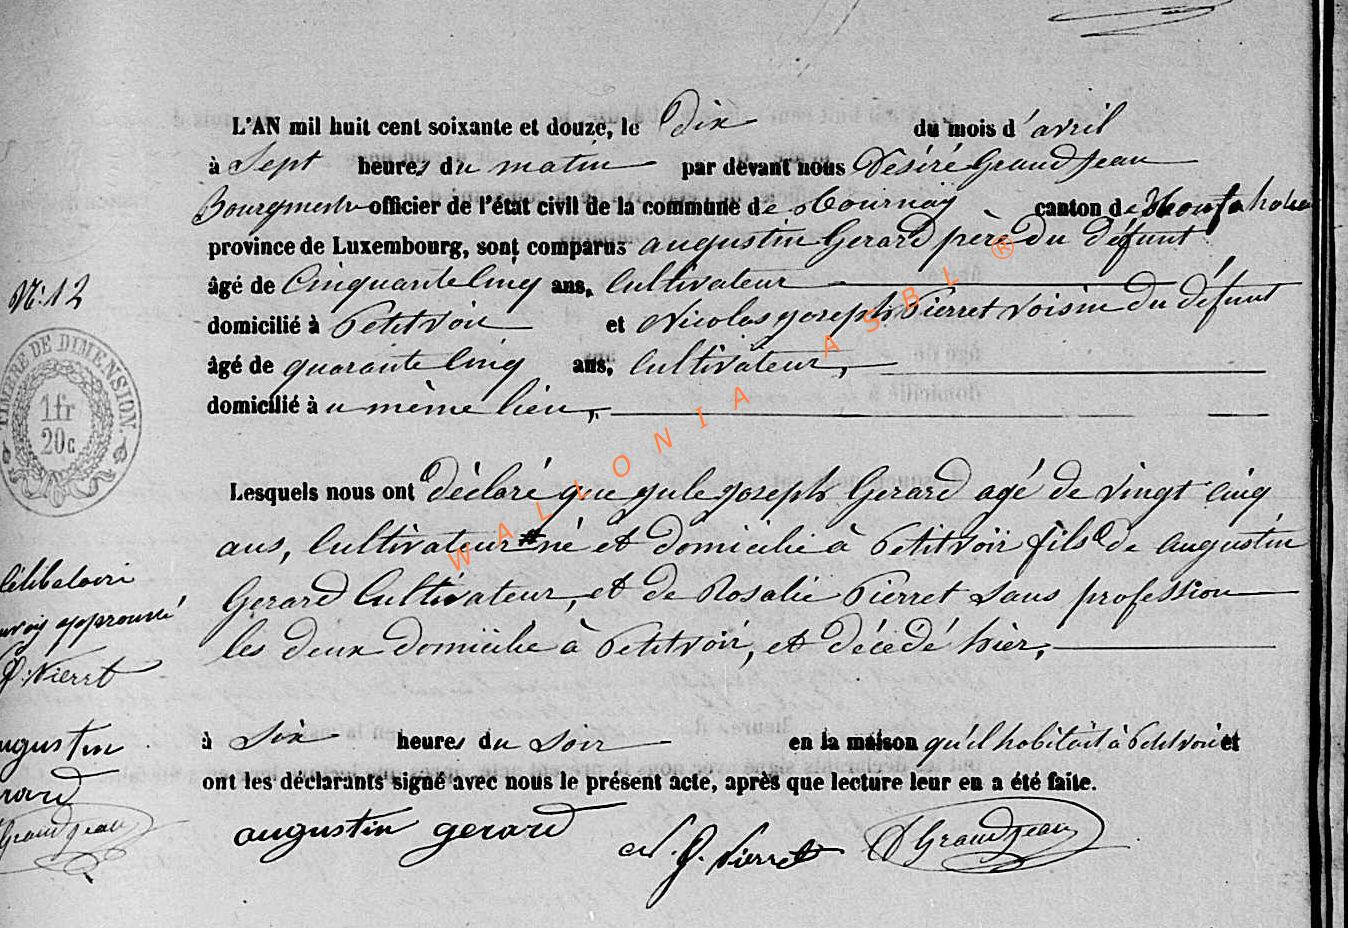 L'AN mil huit cent soixante et douze, le Dix du mois d'avril
à Sept heures du matin par devant nous Désiré Grandjean
Bourgmestre officier de l'état civil de la commune de Tournay canton de
province de Luxembourg, sont comparus augustin Gerard père du défunt
N° 12
âgé de Cinquante cinq ans, Cultivateur
domicilié à Petitvoir et Nicolas joseph Pierret voisin du défunt
âgé de quarante cinq ans, Cultivateur,
domicilié à u même lieu,
TIMBRE DE DIMENSION.
1fr
20c
Lesquels nous ont déclaré que jule joseph Gerard agé de vingt cinq
ans, Cultivateur # né et domicilié à Petitvoir fils de augustin
Gerard Cultivateur, et de Rosalie Pierret sans profession
les deux domicilié à Petitvoir, et décédé hier,
Célibatair
approuvé
Pierret
augustin
Gerard
Grandjean
à Six heures du Soir en la maison qu'il habitait à Petitvoir et
ont les déclarants signé avec nous le présent acte, après que lecture leur en a été faite.
augustin gerard N. J. Pierret D Grandjean
WALLONIA ASBL ®